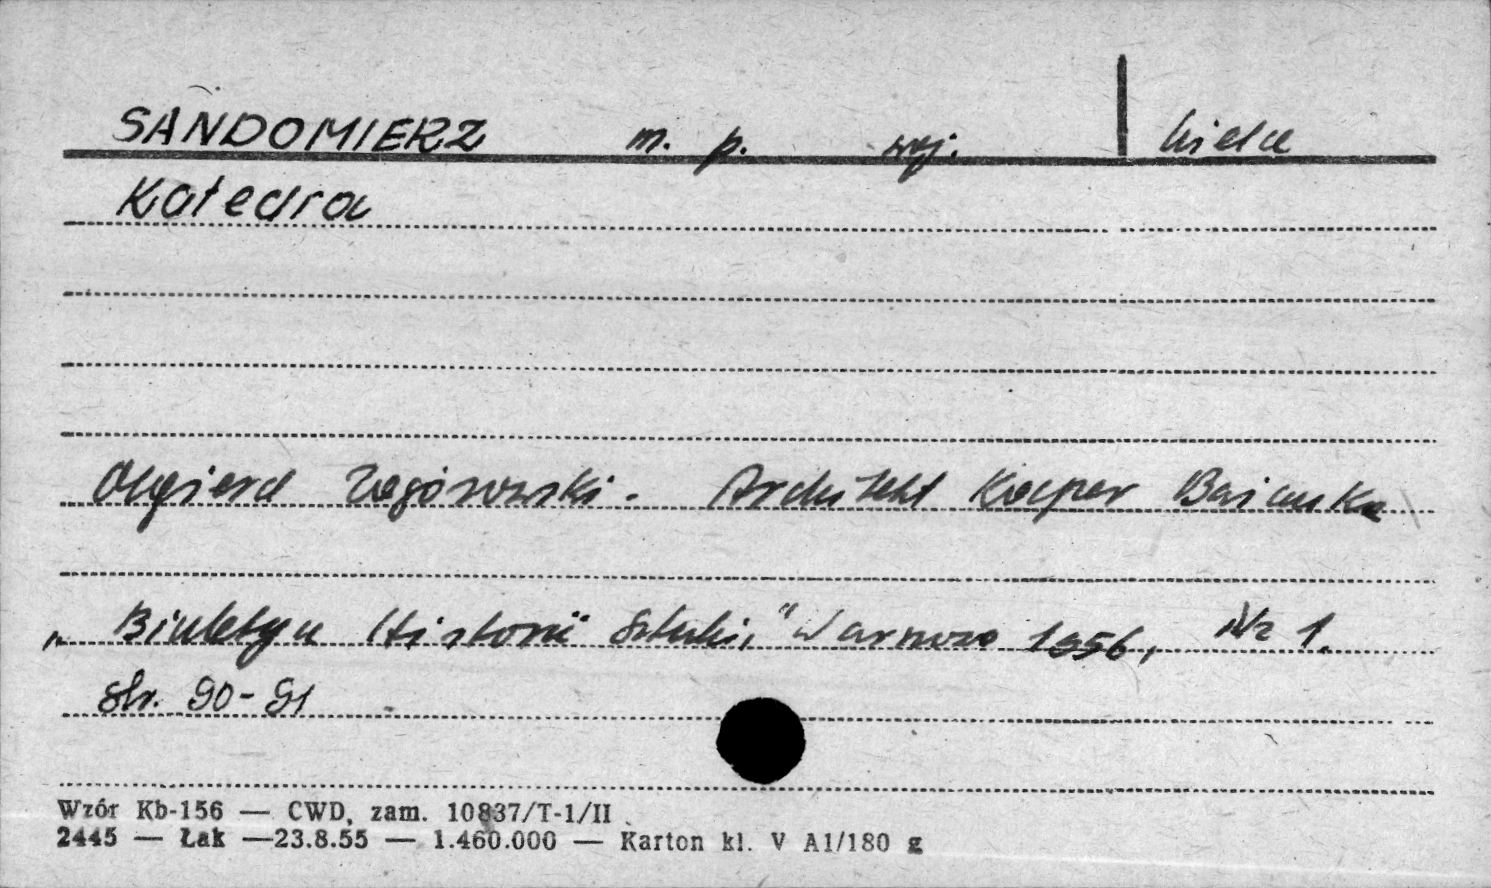 SANDOMIERZ m. p. woj. Kielce
Katedra
Olgierd Zagórowski. Architekt Kacper Bażanka
"Biuletyn Historii Sztuki," Warszawa 1956, Nr 1.
str. 90-91
Wzór Kb-156 — CWD, zam. 10837/T-1/II
2445 — Łak —23.8.55 — 1.460.000 — Karton kl. V A1/180 g